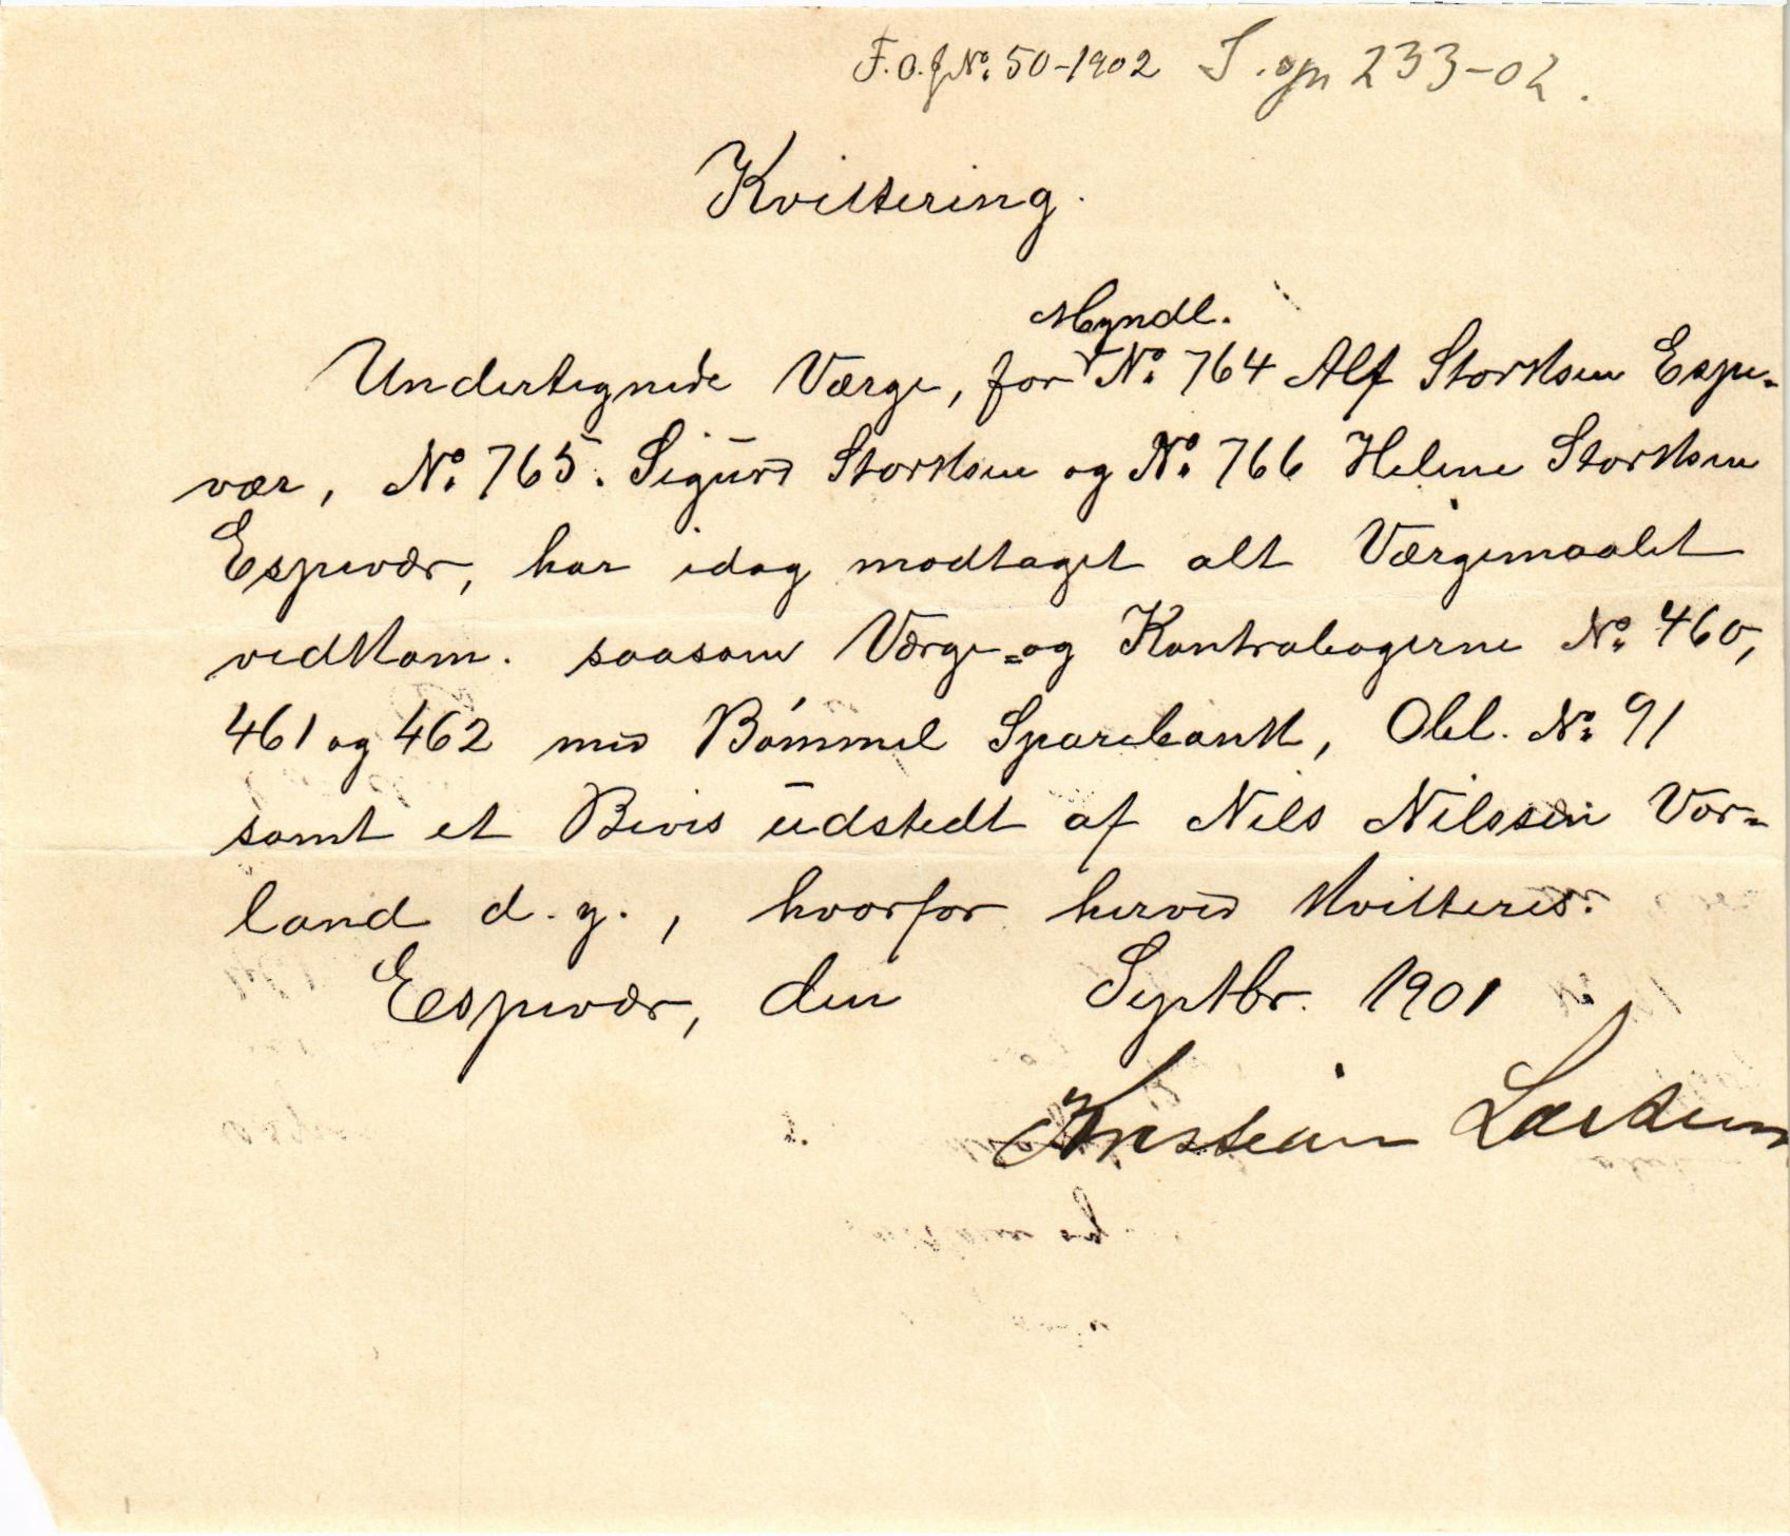 F.O.J No. 50-1902 S. gr 233-02.
Kvittering.
Myndl.
Undertegnede Værge, for No. 764 Alf Storksen Espe-
vær, No. 765. Sigurd Storksen og No. 766 Helene Storksen
Espevær, har idag modtaget alt Værgemaalet
vedkom. saasom Værge- og Kontrabøgerne No. 460,
461 og 462 med Bømmel Sparebank, Obl. No. 91
samt et Bevis udstedt af Nils Nilssen Vor-
land d. y., hvorfor herved kvitteres.
Espevær, den Septbr. 1901
Kristian Larsen